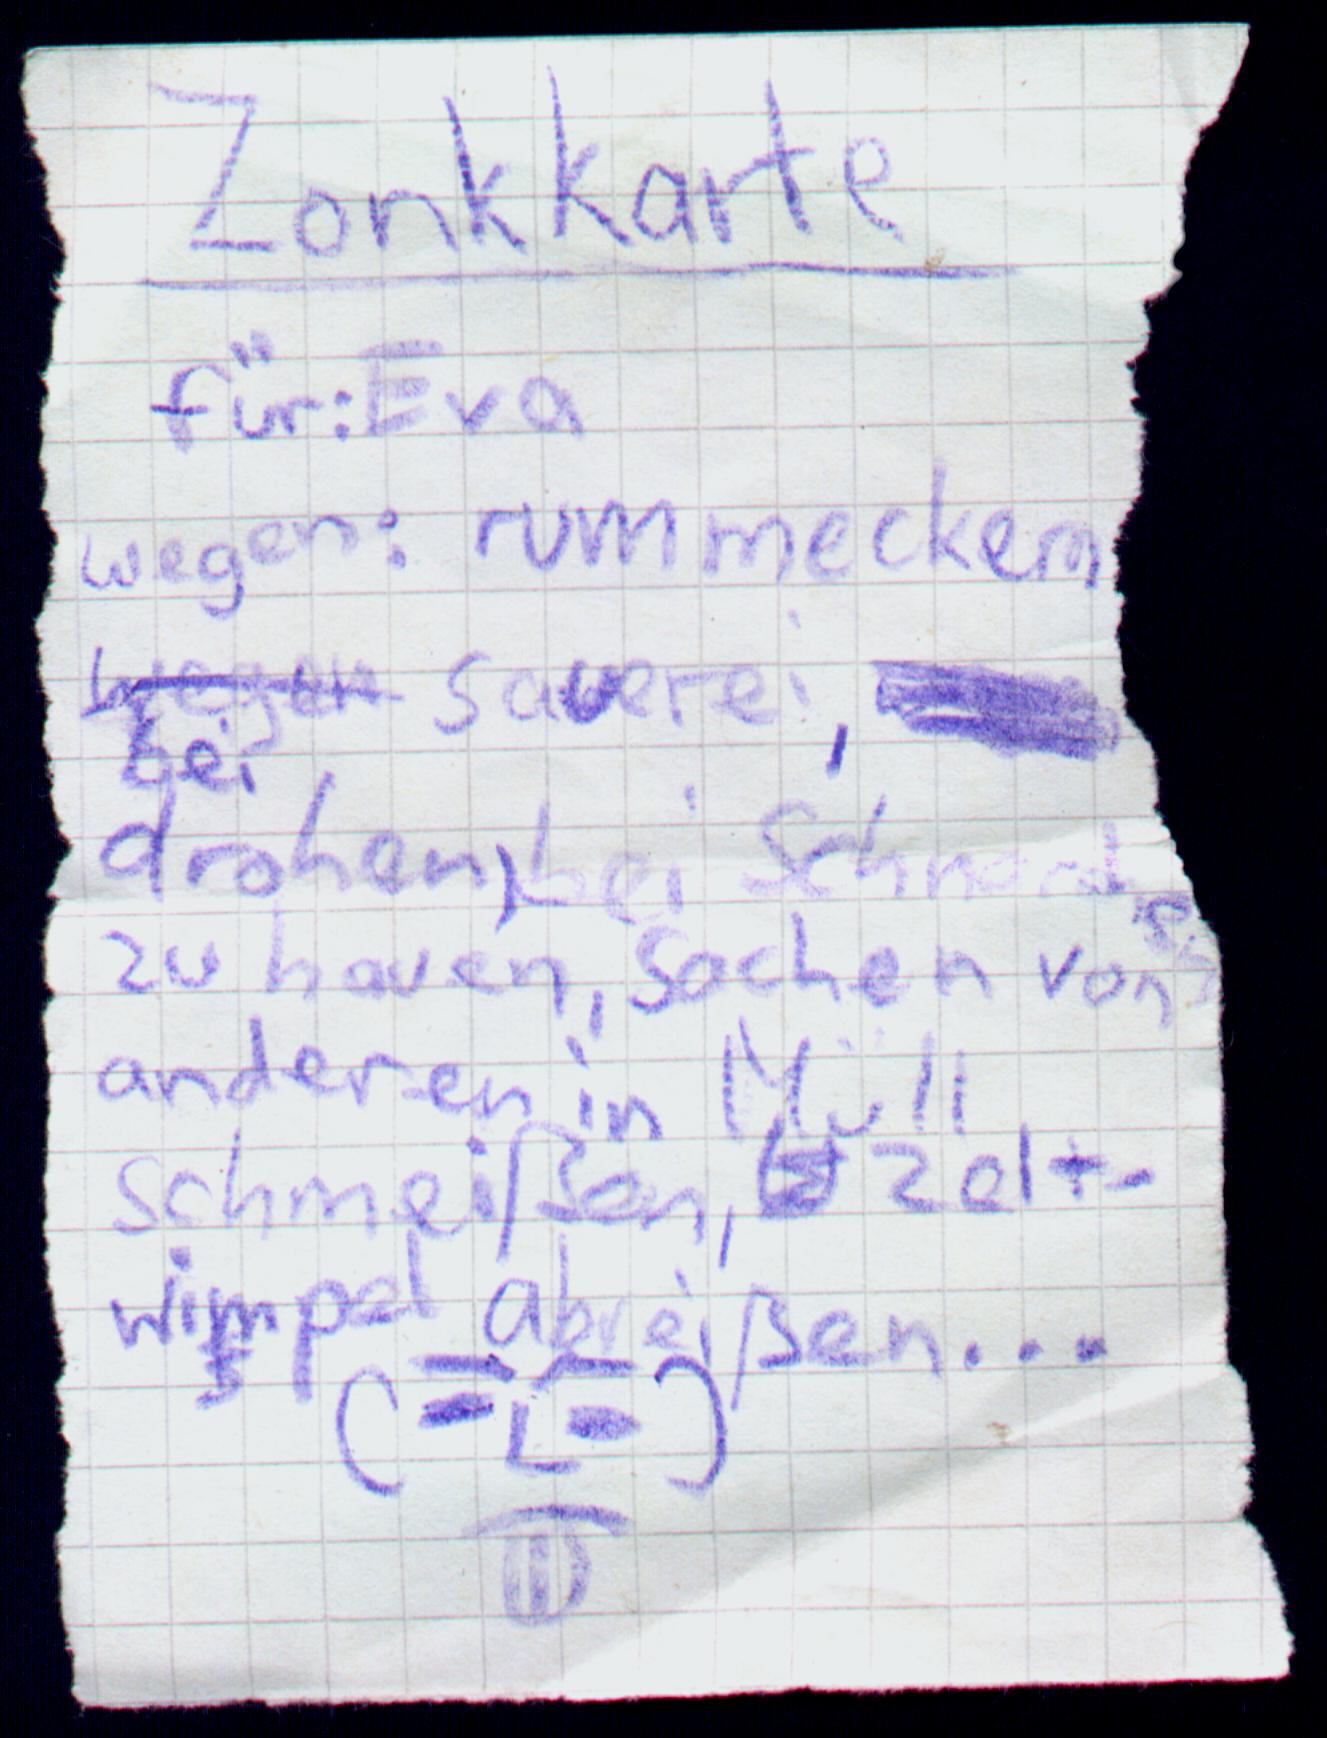 Zonkkarte
für: Eva
wegen: rummeckern
wegen sauerei,
bei
drohen, bei Schnarchen
zu hauen, Sachen von
anderen in Müll
schmeißen, Zelt-
wimpel abreißen...